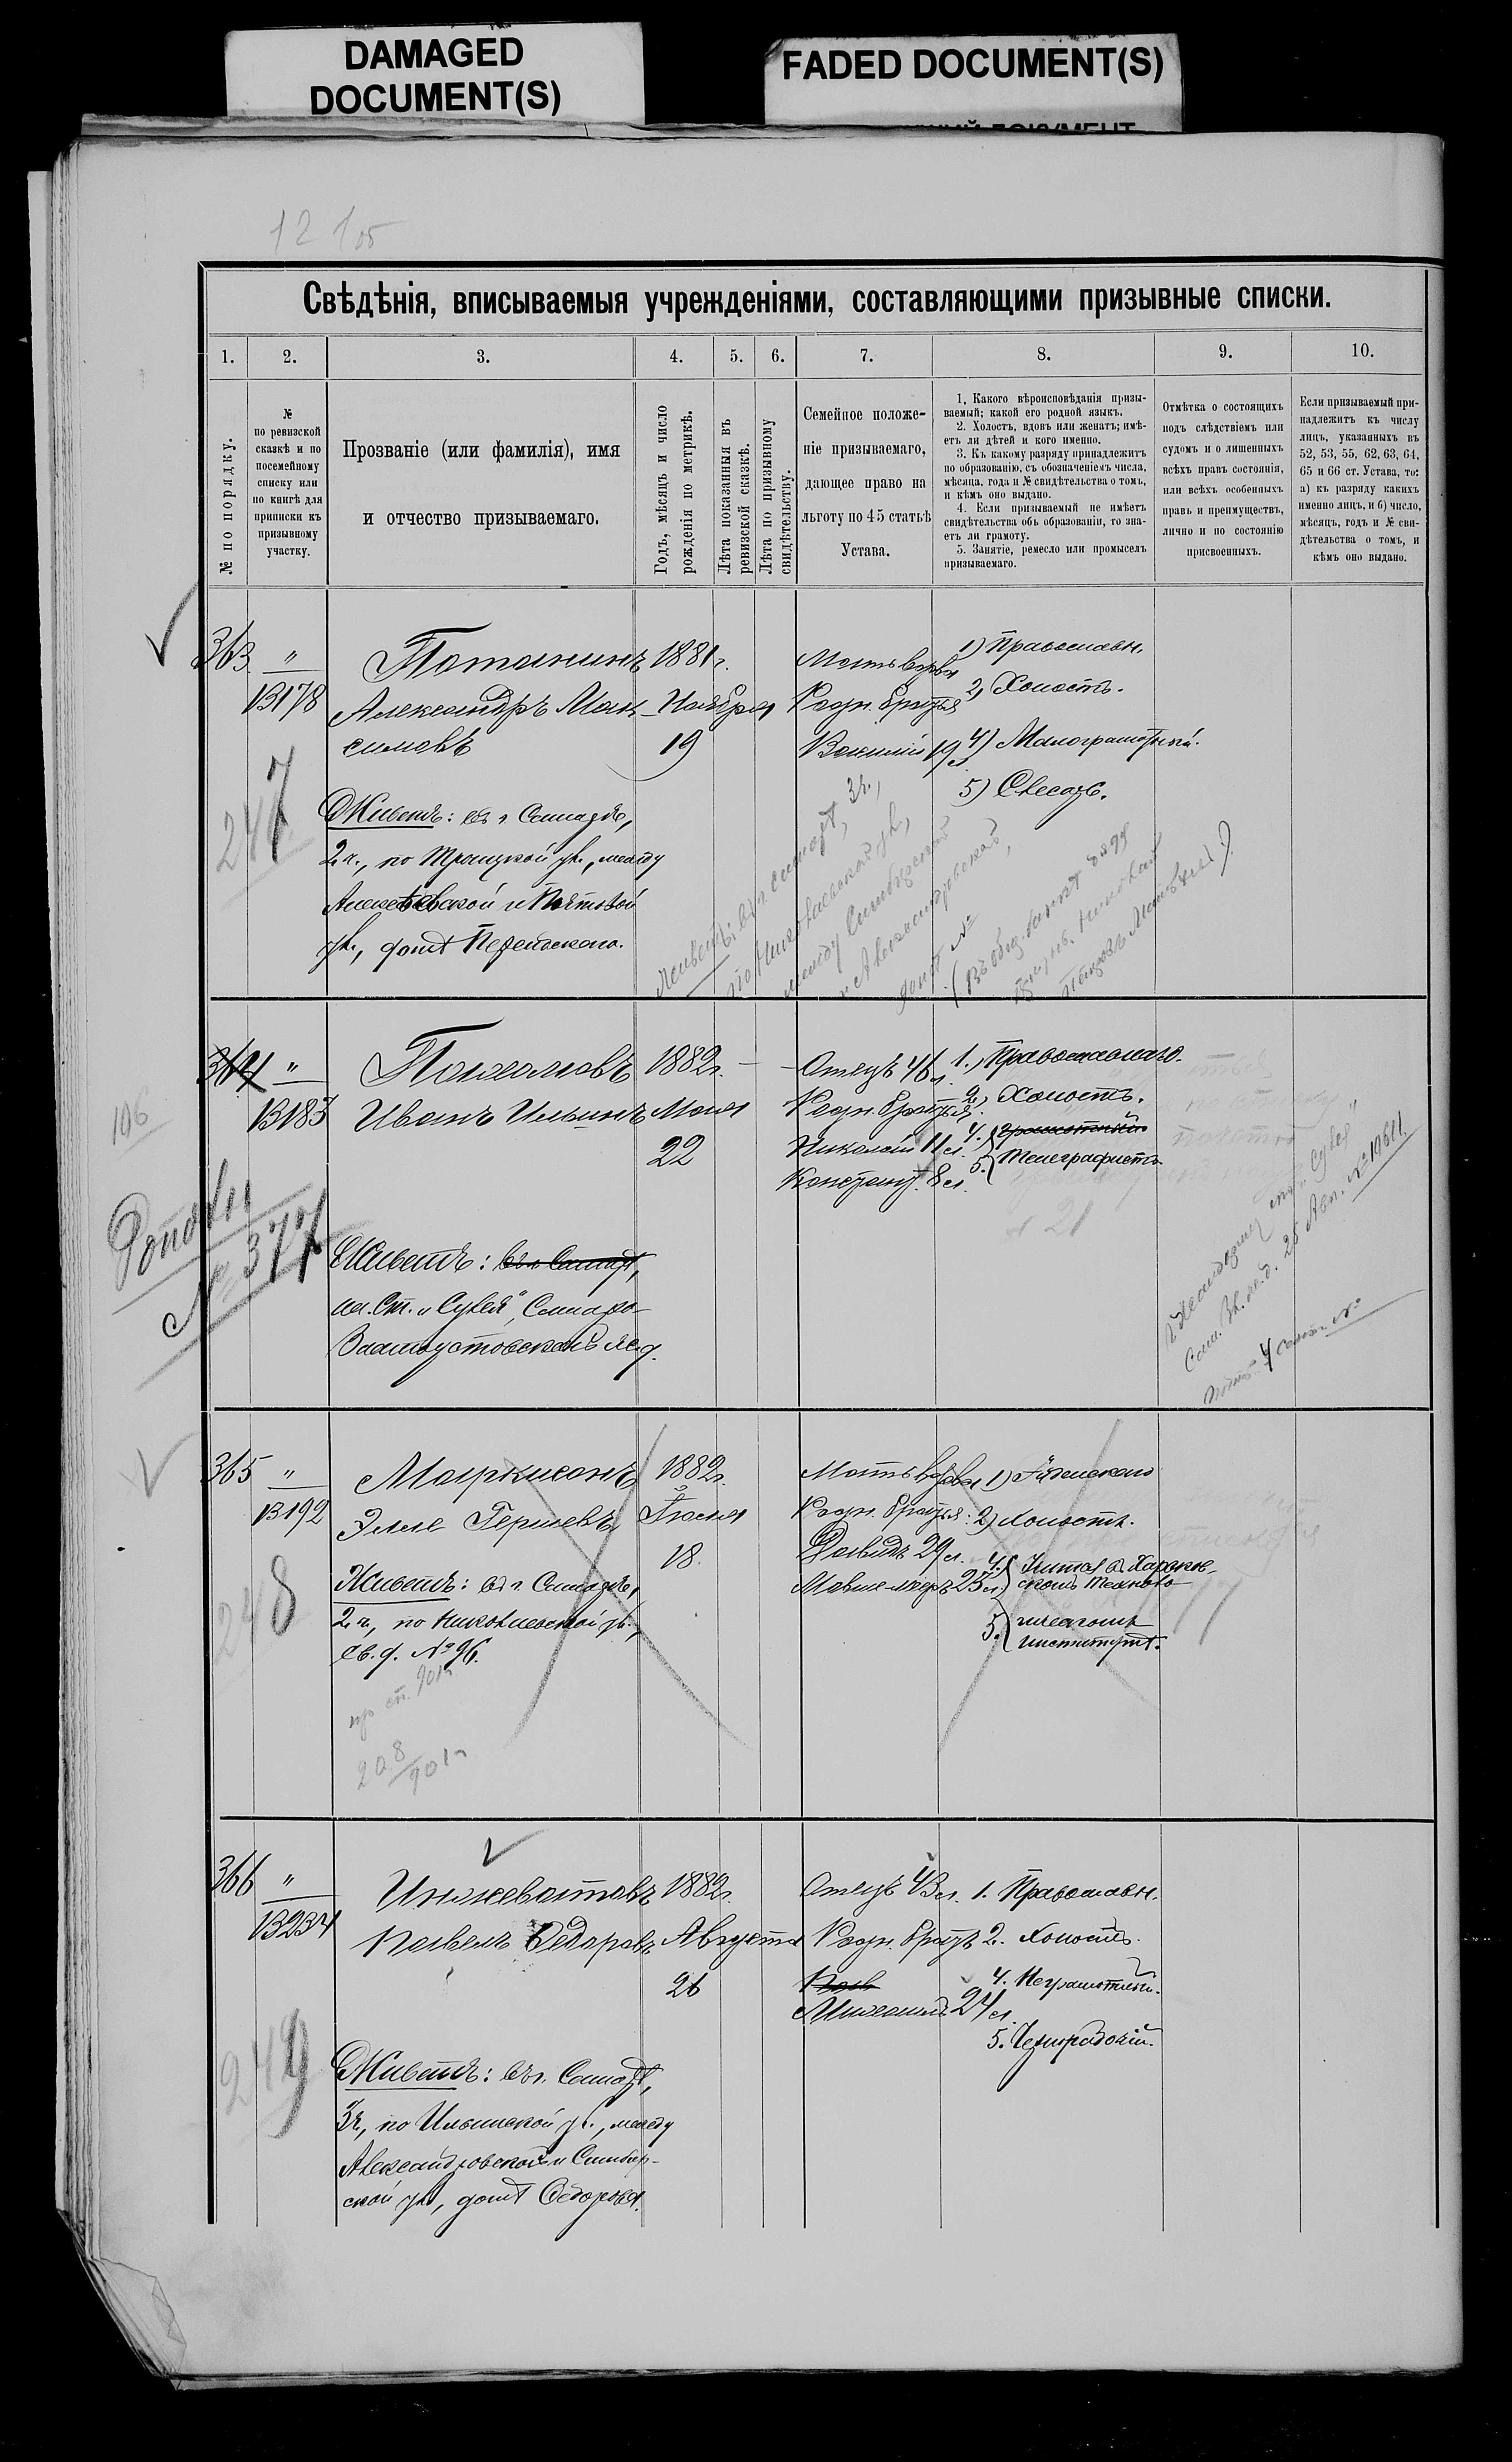 DAMAGED
DOCUMENT(S)
FADED DOCUMENT(S)
12 105
Свѣдѣнія, вписываемыя учрежденіями, составляющими призывные списки.
1. 2. 3. 4. 5. 6. 7. 8. 9. 10.
№ по порядку.
№
по ревизской
сказкѣ и по
посемейному
списку или
по книгѣ для
приписки къ
призывному
участку.
Прозваніе (или фамилія), имя
и отчество призываемаго.
Годъ, мѣсяцъ и число
рожденія по метрикѣ.
Лѣта показанныя въ
ревизской сказкѣ.
Лѣта по призывному
свидѣтельству.
Семейное положе-
ніе призываемаго,
дающее право на
льготу по 45 статьѣ
Устава.
1. Какого вѣроисповѣданія призы-
ваемый; какой его родной языкъ.
2. Холостъ, вдовъ или женатъ; имѣ-
етъ ли дѣтей и кого именно.
3. Къ какому разряду принадлежитъ
по образованію, съ обозначеніемъ числа,
мѣсяца, года и № свидѣтельства о томъ,
и кѣмъ оно выдано.
4. Если призываемый не имѣетъ
свидѣтельства объ образованіи, то зна-
етъ ли грамоту.
5. Занятіе, ремесло или промыселъ
призываемаго.
Отмѣтка о состоящихъ
подъ слѣдствіемъ или
судомъ и о лишенныхъ
всѣхъ правъ состоянія,
или всѣхъ особенныхъ
правъ и преимуществъ,
лично и по состоянію
присвоенныхъ.
Если призываемый при-
надлежитъ къ числу
лицъ, указанныхъ въ
52, 53, 55, 62, 63, 64,
65 и 66 ст. Устава, то:
а) къ разряду какихъ
именно лицъ, и б) число,
мѣсяцъ, годъ и № сви-
дѣтельства о томъ, и
кѣмъ оно выдано.
363 "
В178
247
Потанинъ
Александръ Мак-
симовъ
1881 г.
Ноября
19
Мать вдова
Родн. братья
Василій 19 л.
1) Православн.
2) Холостъ.
4) Малограмотный.
5) Слесарь.
Живетъ: въ г. Самарѣ,
2 ч., по Троицкой ул., между
Алексѣевской и
ул., домъ
Живетъ: въ г. Самарѣ, 3 ч.,
по Николаевской ул.,
между Симбирской
и Александровской,
домъ №
364 "
В183
106
№ 377
Иванъ Ильинъ
1882 г.
Мая
22
Отецъ 46 л.
Родн. братья
Николай 11 л.
Констант. 8 л.
1., Православнаго.
2., Холостъ.
4. грамотный
5. Телеграфистъ
Живетъ: въ г. Самарѣ,
на ст. „Сулея", Самаро-
Златоустовской ж. д.
№ 19611
365 "
В192
248
Маркисонъ
Элле Гершевъ
1882 г.
Іюля
18
Мать вдова
Родн. братья:
Давидъ 29 л.
25 л.
1) Іудейскаго
2) Холостъ.
4. Учится въ Харьков-
скомъ Техноло-
5. гическомъ
институтѣ.
Живетъ: въ г. Самарѣ,
2 ч., по Николаевской ул.,
св. д. № 96.
208
901 г.
366 "
В234
249
Инжеватовъ
Павелъ Ѳедоровъ
1882 г.
Августа
26
Отецъ 43 л.
Родн. братъ
Михаилъ 24 л.
1. Православн.
2. Холостъ.
4. Неграмотный.
5. Чернорабочій.
Живетъ: въ г. Самарѣ,
3 ч., по Ильинской ул., между
Александровской и Симбир-
ской ул., домъ Ѳедорова.